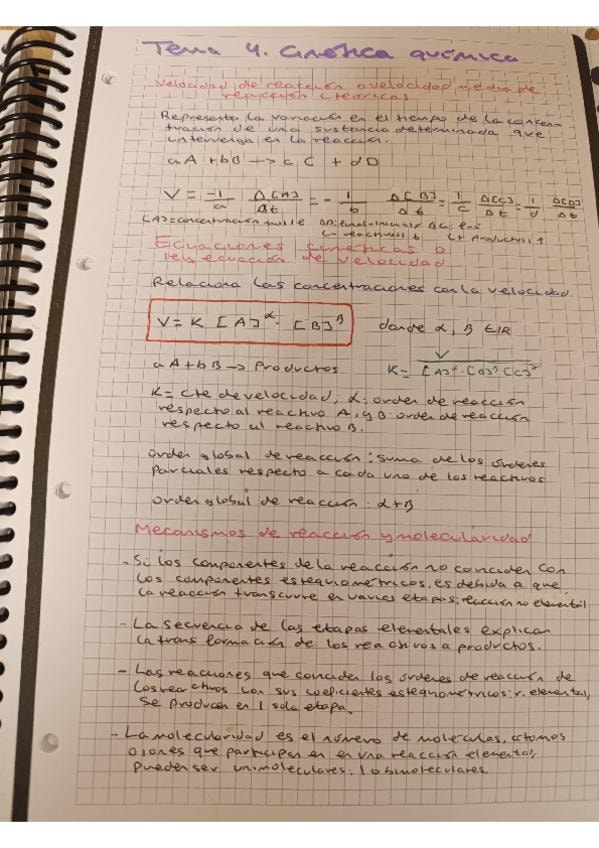 Tema 4. Cinética química
Velocidad de reacción o velocidad media de
reacción (teórica)
Representa la variación en el tiempo de la concen-
tración de una sustancia determinada que
intervenga en la reacción.
aA + bB → cC + dD
V = -1/a Δ[A]/Δt = - 1/b Δ[B]/Δt = 1/c Δ[C]/Δt = 1/d Δ[D]/Δt
[A] = concentración
Ecuaciones cinéticas o
ley ecuación de velocidad
Relaciona las concentraciones con la velocidad.
V = K [A]^α · [B]^β donde α, β ∈ IR
aA + bB → Productos K = V
K = cte de velocidad; α = orden de reacción
respecto al reactivo A, y β: orden de reacción
respecto al reactivo B.
orden global de reacción: suma de los órdenes
parciales respecto a cada uno de los reactivos
orden global de reacción: α+β
Mecanismos de reacción y molecularidad
- Si los componentes de la reacción no coinciden con
los componentes estequiométricos, es debida a que
la reacción transcurre en varias etapas: reacción no elemental
- La secuencia de las etapas elementales explican
la transformación de los reactivos a productos.
- Las reacciones que coinciden los ordenes de reacción de
los reactivos con sus coeficientes estequiométricos: r. elemental,
se producen en 1 sola etapa.
- La molecularidad es el número de moléculas, átomos
o iones que participan en en una reacción elemental,
pueden ser unimoleculares, o bimoleculares.